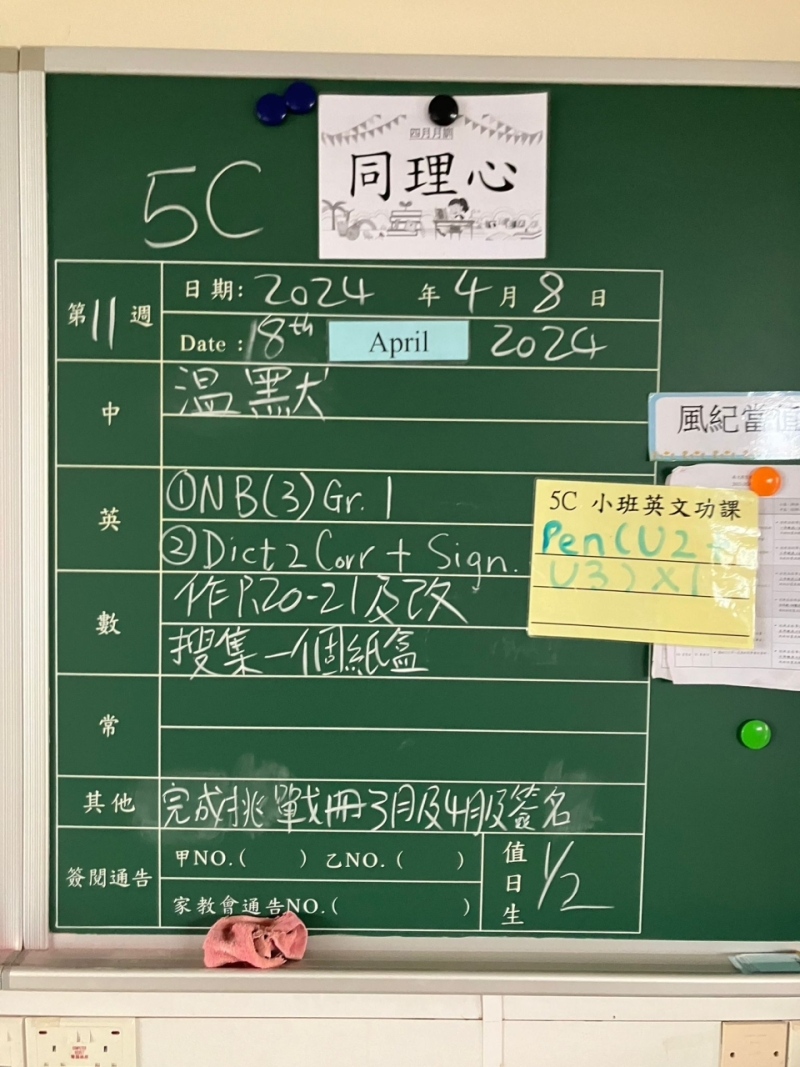 四月月訓
同理心
5C
第11週
日期: 2024 年 4 月 8 日
Date : 8th April 2024
中
溫默
英
①NB(3) Gr. 1
②Dict 2 Corr + Sign.
數
作P.20-21及改
搜集一個紙盒
常
其他
完成挑戰冊3月及4月及簽名
簽閱通告
甲NO.( ) 乙NO. ( )
家教會通告NO.( )
值日生
1/2
風紀當值
5C 小班英文功課
Pen(U2+
U3)×1